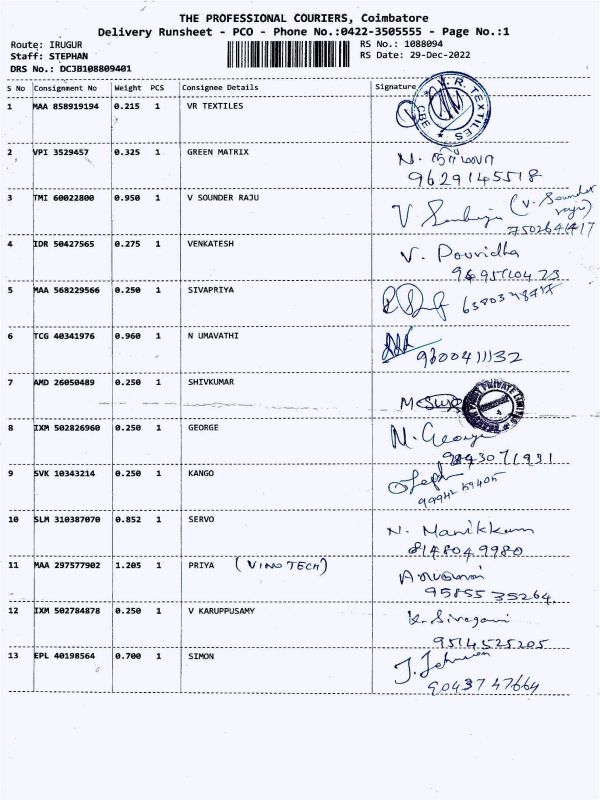 THE PROFESSIONAL COURIERS, Coimbatore
Delivery Runsheet - PCO - Phone No.:0422-3505555 - Page No.:1
Route: IRUGUR
Staff: STEPHAN
DRS No.: DCJB108809401
RS No.: 1088094
RS Date: 29-Dec-2022
S No Consignment No Weight PCS Consignee Details Signature
1 MAA 858919194 0.215 1 VR TEXTILES
V.R. TEXTILES CBE
2 VPI 3529457 0.325 1 GREEN MATRIX
9629145518
3 TMI 60022800 0.950 1 V SOUNDER RAJU
(V. Sounder raju)
7502641417
4 IDR 50427565 0.275 1 VENKATESH
V. Pouridha
5 MAA 568229566 0.250 1 SIVAPRIYA
6 TCG 40341976 0.960 1 N UMAVATHI
9600411132
7 AMD 26050489 0.250 1 SHIVKUMAR
PRIVATE LIMITED
8 IXM 502826960 0.250 1 GEORGE
N. George
9843071931
9 SVK 10343214 0.250 1 KANGO
10 SLM 310387070 0.852 1 SERVO
N. Manikkam
8148049980
11 MAA 297577902 1.205 1 PRIYA (VINO TECH)
95855 35264
12 IXM 502784878 0.250 1 V KARUPPUSAMY
K. Sivagami
9514525205
13 EPL 40198564 0.700 1 SIMON
90437 47664